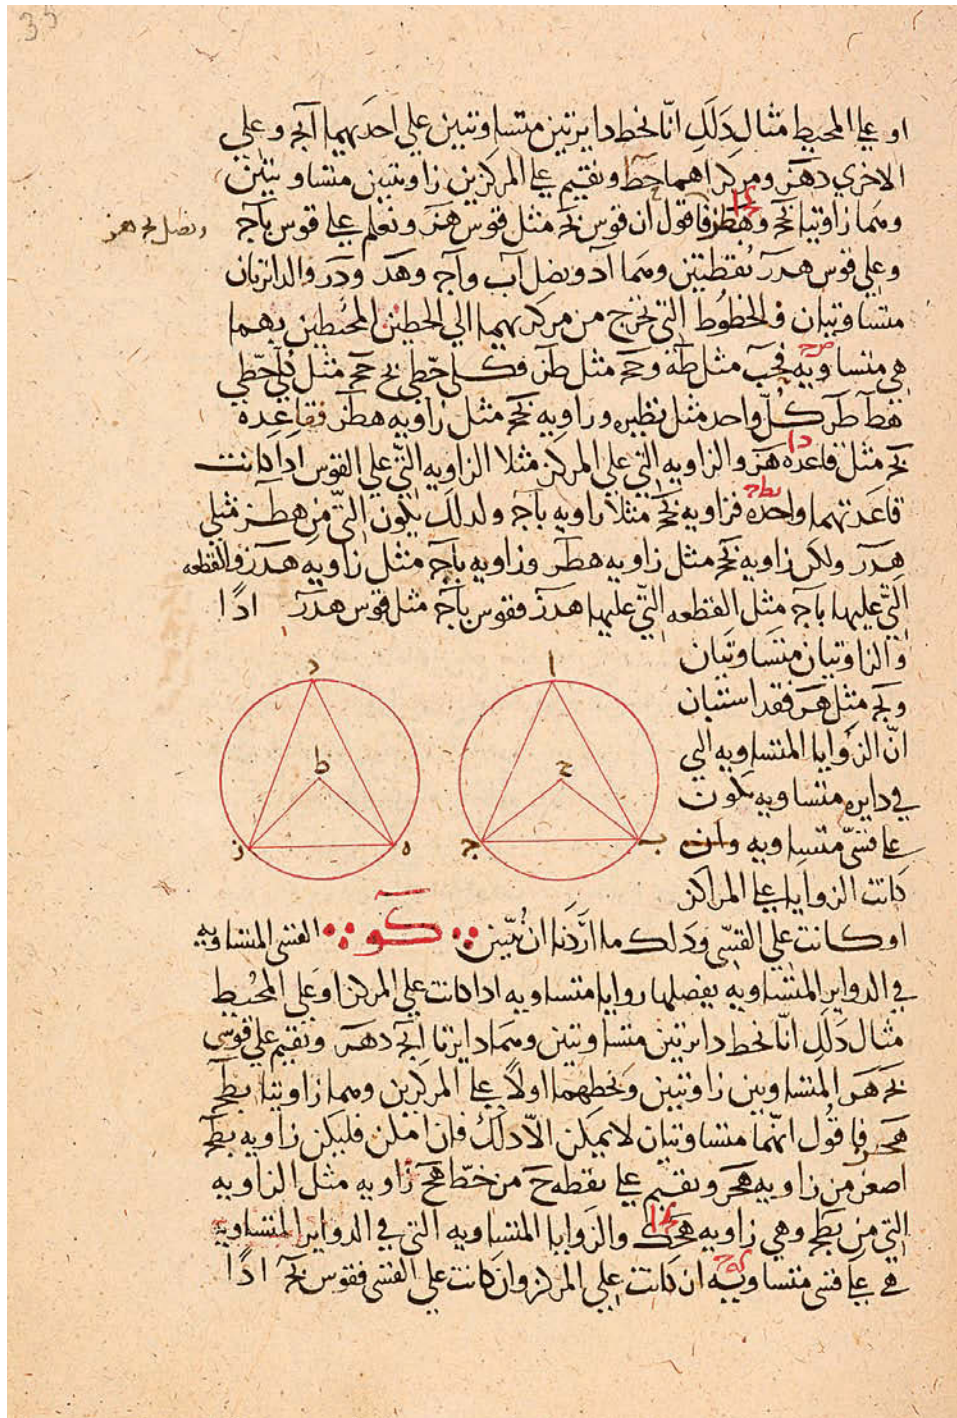 35
او علي المحيط مثال ذلك انّا نخط دايرتين متساويتين علي احدىهما ابج وعلي
الاخري دهز ومركزاهما حط ونقيم علي المركزين زاويتين متساويتين
وهما زاويتا بحج وهطز فاقول ان قوس بج مثل قوس هز ونعلم علي قوس باج
ونصل بج هز
وعلي قوس هدز نقطتين وهما اد ونصل اب واج وهد ودز والدايرتان
متساويتان فالخطوط التي تخرج من مركزيهما الي الخطين المحيطين بهما
هي متساويه فحب مثل طه وحج مثل طز فكل خطي بح حج مثل كل خطي
هط طز كل واحد مثل نظيره وزاويه بحج مثل زاويه هطز فقاعده
بج مثل قاعده هز والزاويه التي علي المركز مثلا الزاويه التي علي القوس اذا كانت
قاعدتهما واحده فزاويه بحج مثلا زاويه باج ولذلك يكون التي من هطز مثلي
هدز ولكن زاويه بحج مثل زاويه هطز فزاويه باج مثل زاويه هدز فالقطعه
التي عليها باج مثل القطعه التي عليها هدز فقوس باج مثل قوس هدز اذًا
والزاويتان متساويتان
وبج مثل هز فقد استبان
انّ الزوايا المتساويه التي
في دايره متساويه تكون
علي قسيّ متساويه وان
كانت الزوايا علي المراكز
ا
ح
ب
ج
د
ط
ه
ز
او كانت علي القسي وذلك ما اردنا ان نبين كو القسي المتساويه
في الدواير المتساويه يفصلها زوايا متساويه اذا كانت علي المركز او علي المحيط
مثال ذلك انّا نخط دايرتين متساويتين وهما دايرتا ابج دهز ونقيم علي قوسي
بج هز المتساويين زاويتين ونخطهما اولاً علي المركزين وهما زاويتا بطج
هحز فاقول انهما متساويتان لا يمكن الا ذلك فان امكن فليكن زاويه بطج
اصغر من زاويه هحز ونقيم علي نقطه ح من خط هح زاويه مثل الزاويه
التي من بطج وهي زاويه هحك والزوايا المتساويه التي في الدواير المتساويه
هي علي قسي متساويه ان كانت علي المركز وان كانت علي القسي فقوس بج اذًا